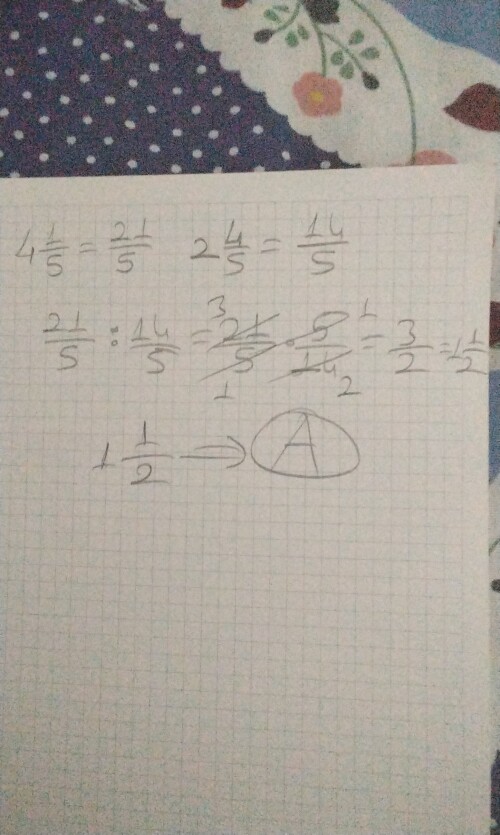 4 1/5 = 21/5 2 4/5 = 14/5
21/5 : 14/5 = 3 21/5 1 · 5/14 1 2 = 3/2 = 1 1/2
1 1/2 ⇒ A